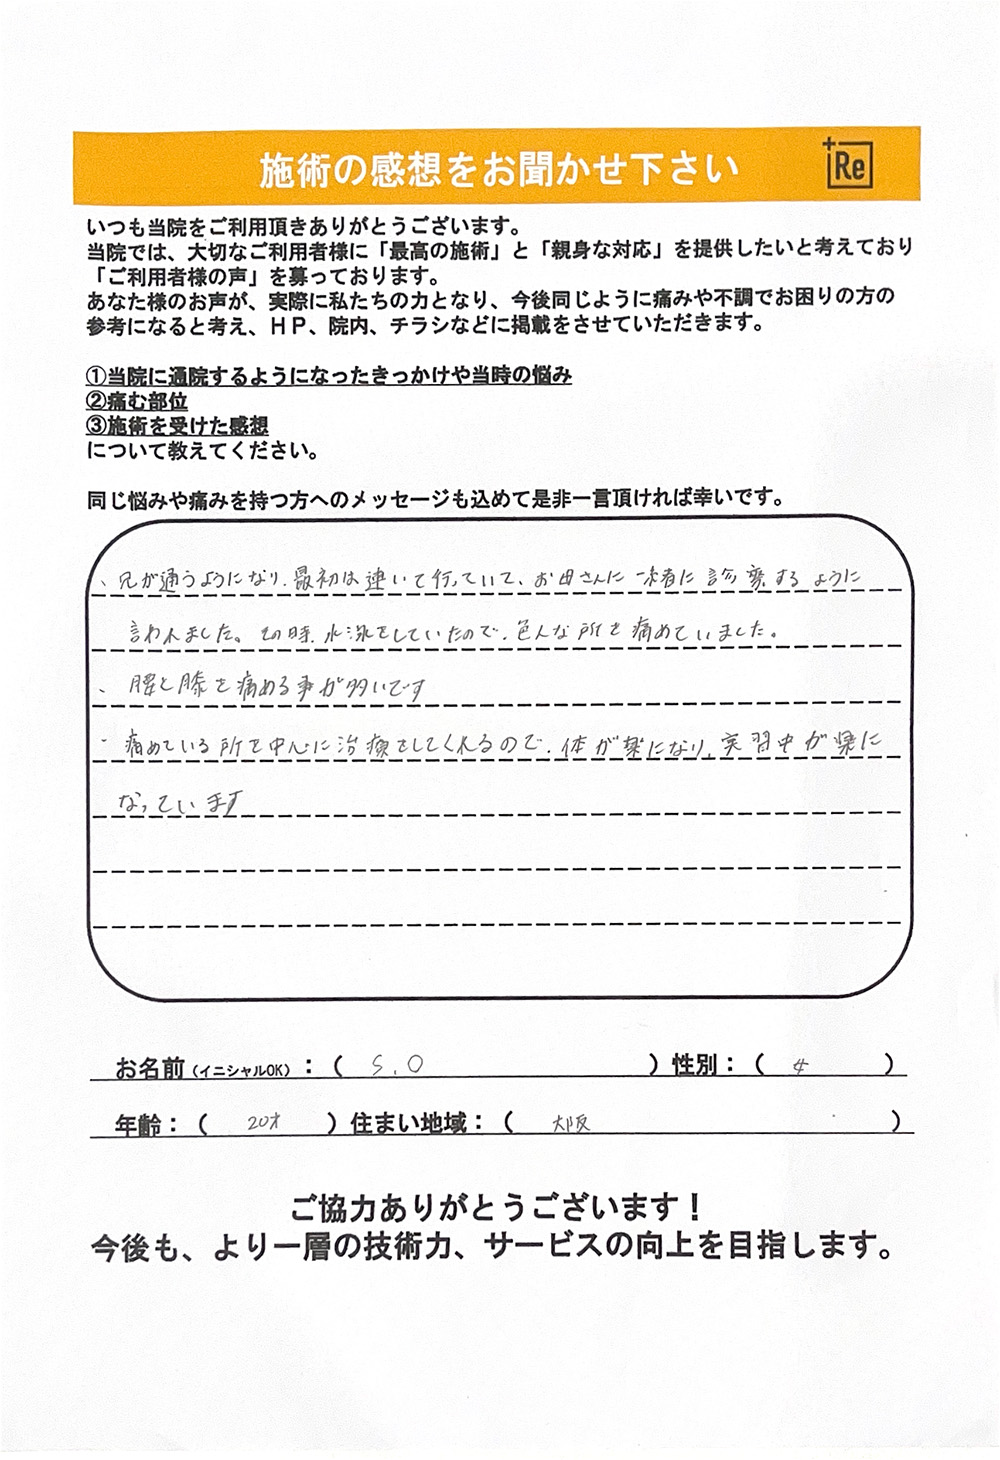 施術の感想をお聞かせ下さい
+Re
いつも当院をご利用頂きありがとうございます。
当院では、大切なご利用者様に「最高の施術」と「親身な対応」を提供したいと考えており
「ご利用者様の声」を募っております。
あなた様のお声が、実際に私たちの力となり、今後同じように痛みや不調でお困りの方の
参考になると考え、HP、院内、チラシなどに掲載をさせていただきます。
①当院に通院するようになったきっかけや当時の悩み
②痛む部位
③施術を受けた感想
について教えてください。
同じ悩みや痛みを持つ方へのメッセージも込めて是非一言頂ければ幸いです。
、兄が通うようになり、最初は連いて行っていて、お母さんに一緒に診察するように
言われました。その時、水泳をしていたので、色んな所を痛めていました。
、腰と膝を痛める事が多いです
・痛めている所を中心に治療をしてくれるので、体が楽になり、実習中が楽に
なっています
お名前(イニシャルOK):( S.O ) 性別:( 女 )
年齢:( 20才 ) 住まい地域:( 大阪 )
ご協力ありがとうございます!
今後も、より一層の技術力、サービスの向上を目指します。